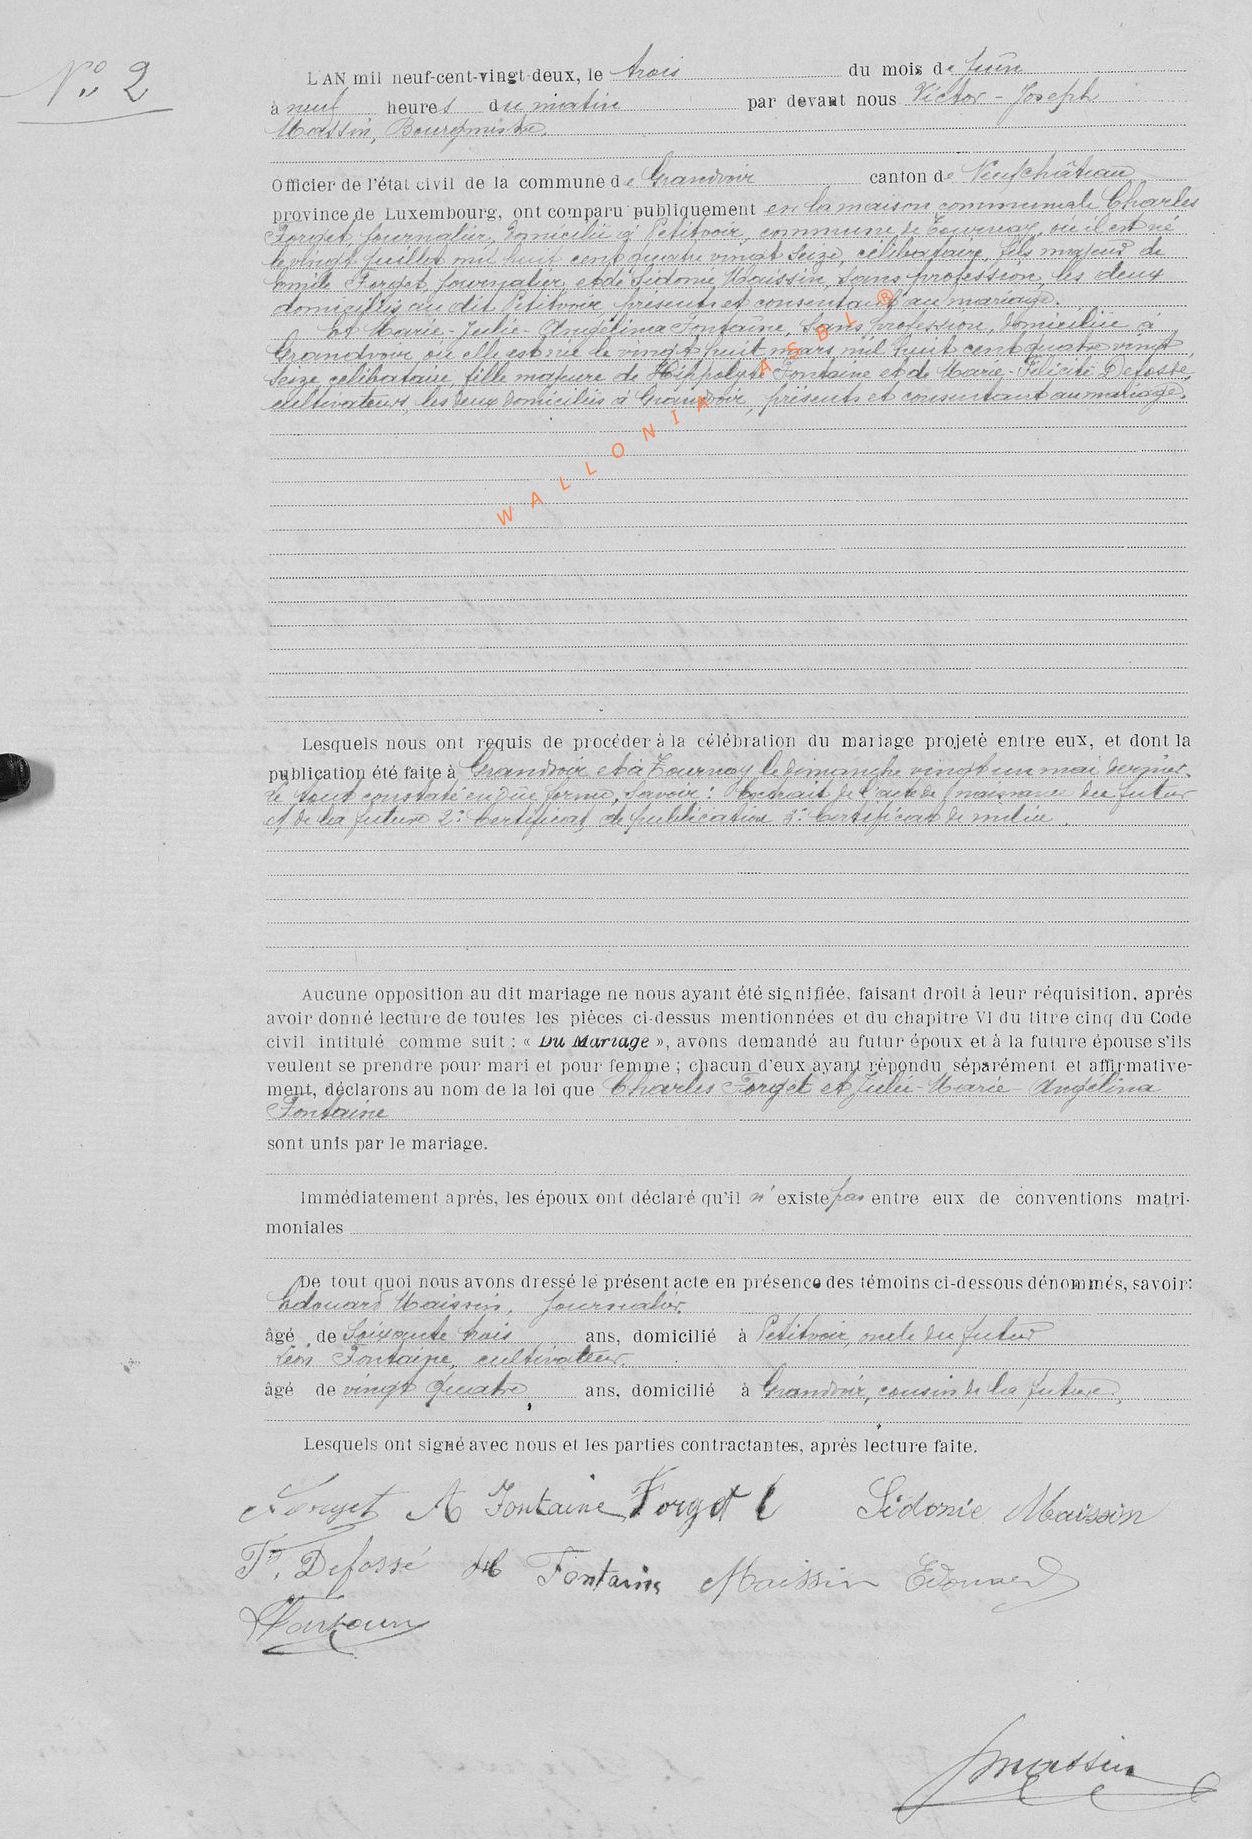 N° 2
L'AN mil neuf-cent-vingt-deux, le trois du mois de Juin
à neuf heures du matin par devant nous Victor-Joseph
Massin, Bourgmestre,
Officier de l'état civil de la commune de Grandvoir canton de Neufchâteau
province de Luxembourg, ont comparu publiquement en la maison communale Charles
Forget, journalier, domicilié à Petitvoir, commune de Tournay, où il est né
le vingt juillet mil huit cent quatre vingt seize, célibataire, fils majeur de
Emile Forget, journalier, et de Sidonie Maissin, sans profession, les deux
domiciliés au dit Petitvoir, présents et consentant au mariage.
Et Marie-Julie-Angélina Fontaine, sans profession, domiciliée à
Grandvoir où elle est née le vingt huit mars mil huit cent quatre vingt
seize, célibataire, fille majeure de Hippolyte Fontaine et de Marie-Félicité Defossé,
cultivateurs, les deux domiciliés à Grandvoir, présents et consentant au mariage.
WALLONIA ASBL ®
Lesquels nous ont requis de procéder à la célébration du mariage projeté entre eux, et dont la
publication été faite à Grandvoir et à Tournay le dimanche vingt un mai dernier.
Le tout constaté en due forme, savoir: extrait de l'acte de naissance du futur
et de la future 2° Certificat de publication 3° Certificat de milice.
Aucune opposition au dit mariage ne nous ayant été signifiée, faisant droit à leur réquisition, après
avoir donné lecture de toutes les pièces ci-dessus mentionnées et du chapitre VI du titre cinq du Code
civil intitulé comme suit : « Du Mariage », avons demandé au futur époux et à la future épouse s'ils
veulent se prendre pour mari et pour femme ; chacun d'eux ayant répondu séparément et affirmative-
ment, déclarons au nom de la loi que Charles Forget et Julie-Marie-Angélina
Fontaine
sont unis par le mariage.
Immédiatement après, les époux ont déclaré qu'il n'existe pas entre eux de conventions matri-
moniales
De tout quoi nous avons dressé le présent acte en présence des témoins ci-dessous dénommés, savoir:
Edouard Maissin, journalier,
âgé de Soixante trois ans, domicilié à Petitvoir, oncle du futur
Léon Fontaine, cultivateur,
âgé de vingt quatre ans, domicilié à Grandvoir, cousin de la future,
Lesquels ont signé avec nous et les parties contractantes, après lecture faite.
Forget A Fontaine Forget E Sidonie Maissin
Fté Defossé H Fontaine Maissin Edouard
Massin